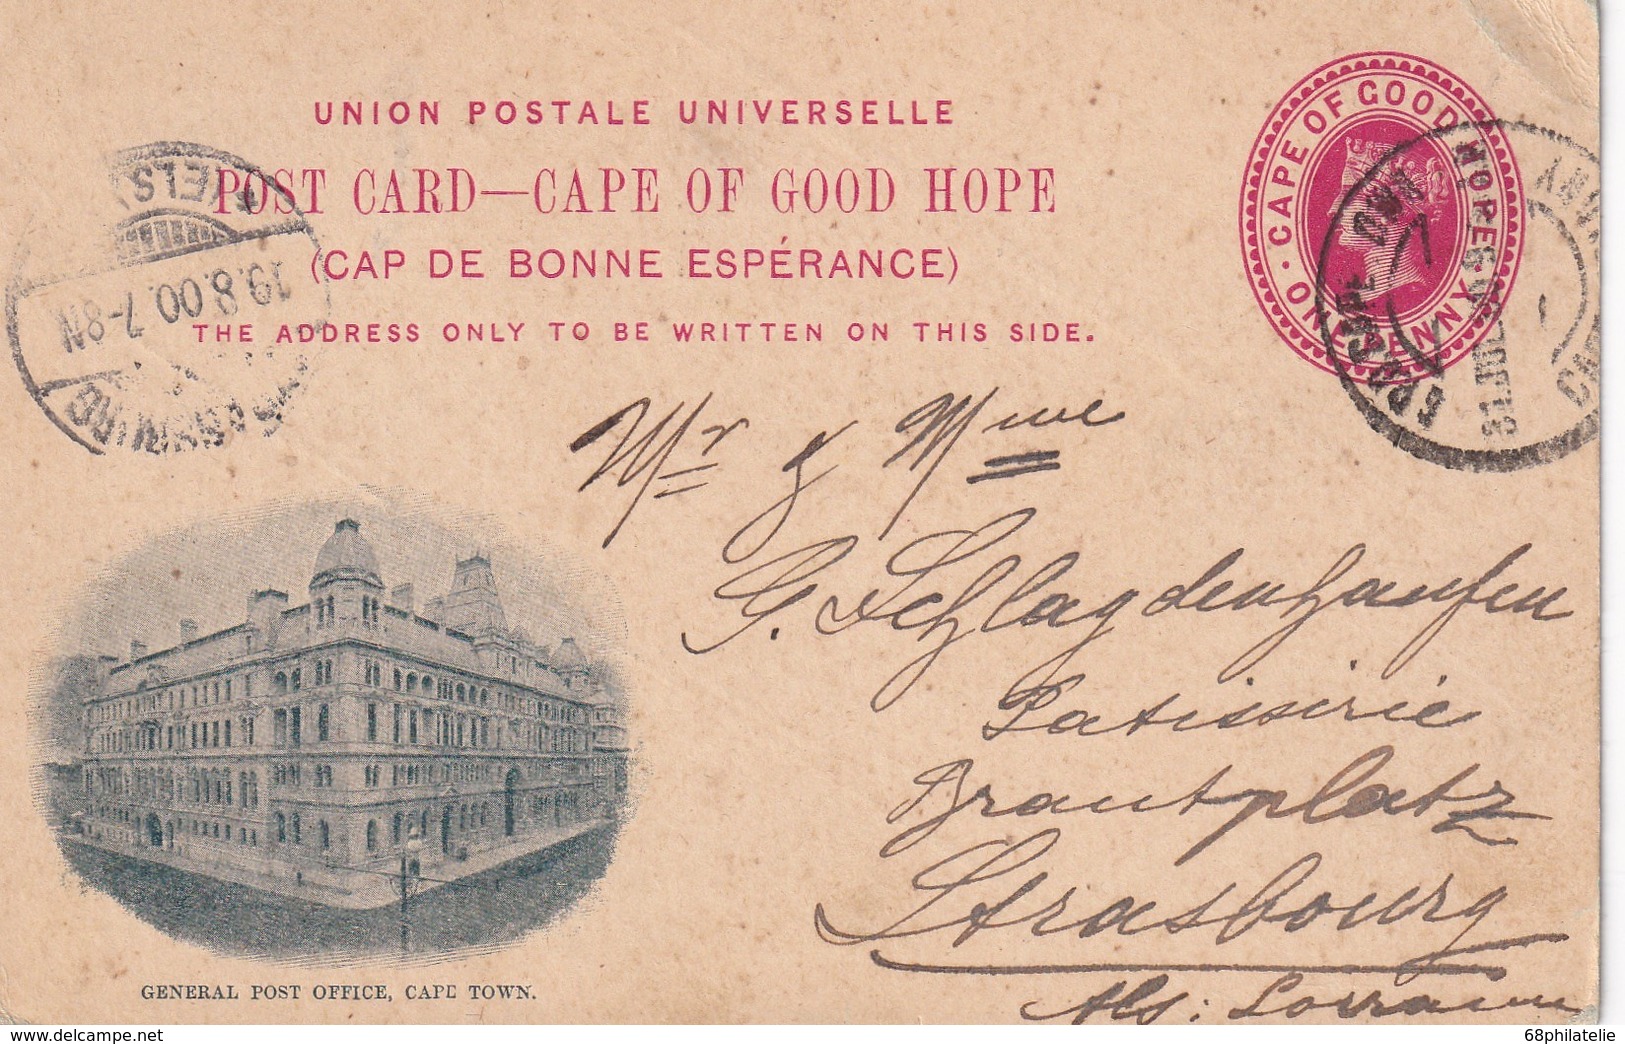 UNION POSTALE UNIVERSELLE
POST CARD—CAPE OF GOOD HOPE
(CAP DE BONNE ESPÉRANCE)
THE ADDRESS ONLY TO BE WRITTEN ON THIS SIDE.
CAPE OF GOOD
ONE PENNY
CAPE TOWN
31 JUL
19.8.00.7-8N
Mr & Mme
G. Schlagdenhaufen
Patisserie
Brantplatz
Strasbourg
Als: Lorraine
GENERAL POST OFFICE, CAPE TOWN.
www.delcampe.net
68philatelie